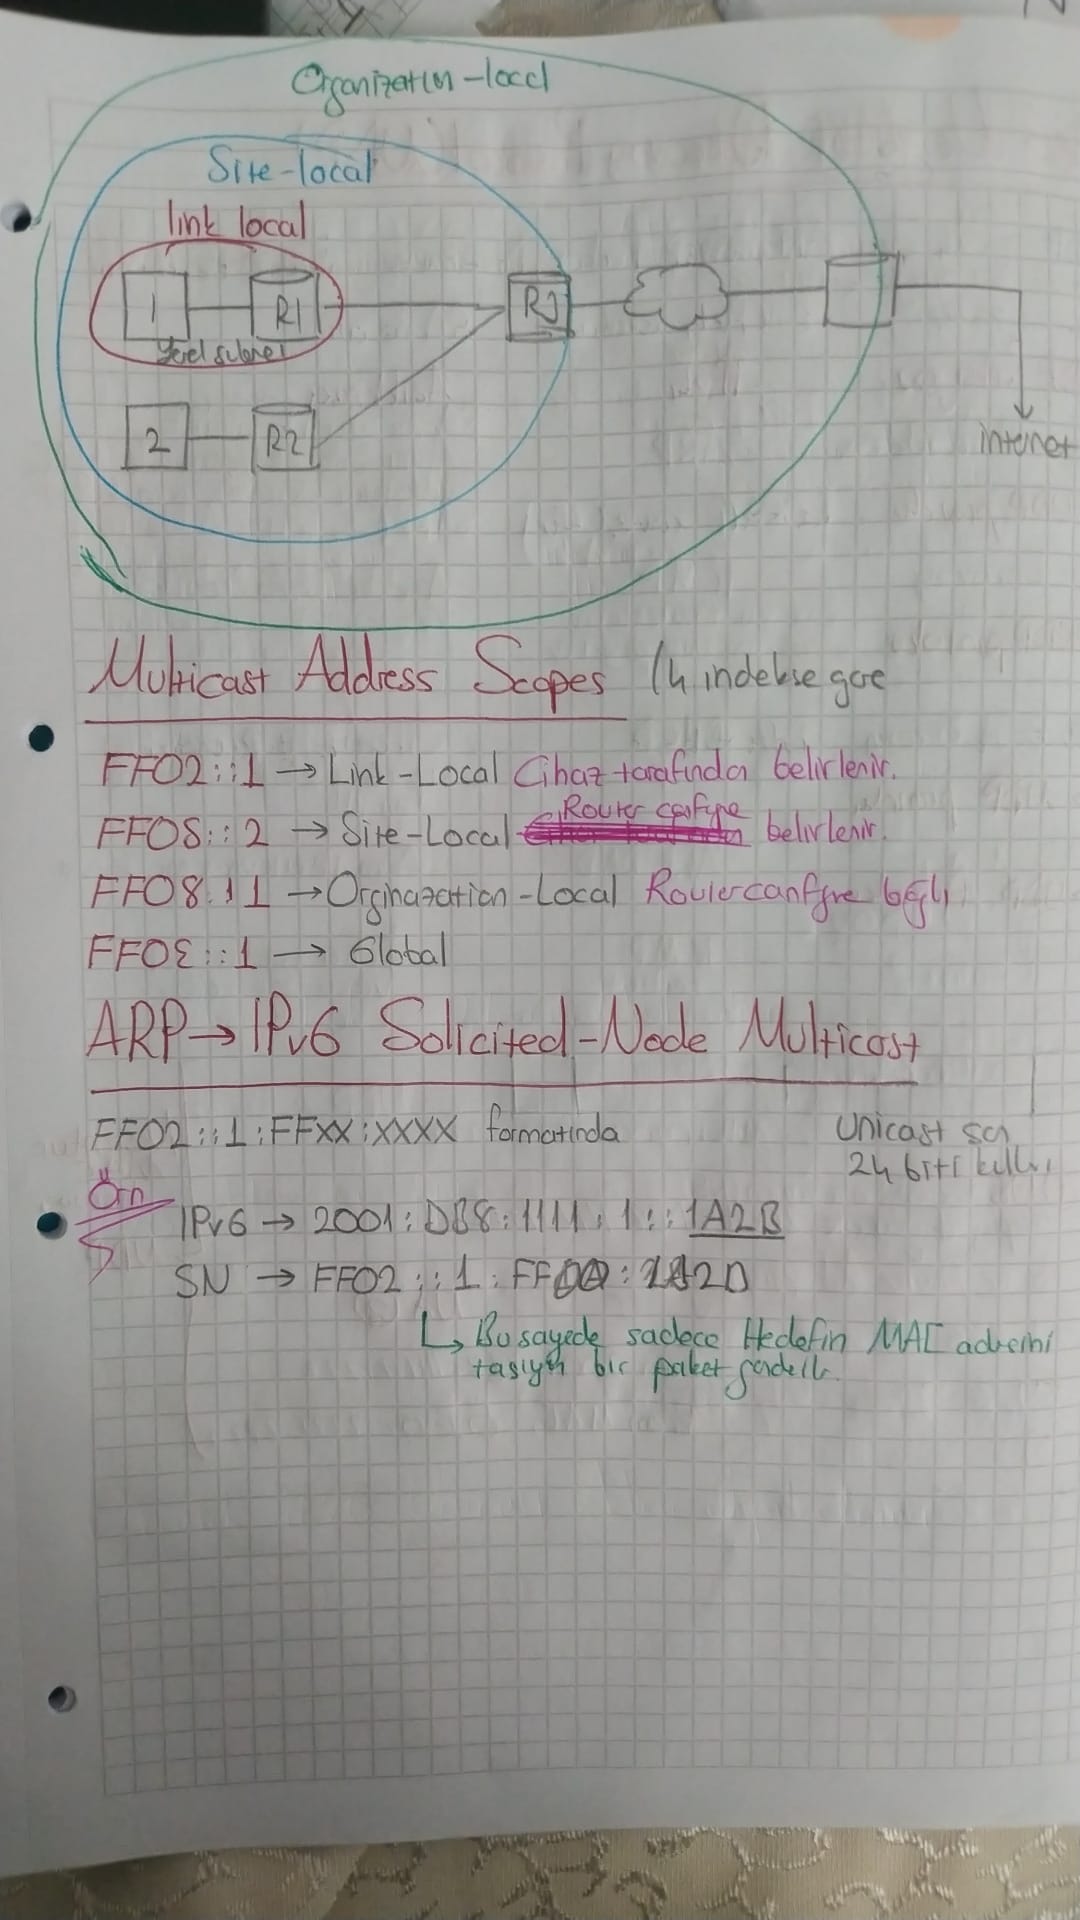 Organization-local
Site-local
link local
1
R1
R3
Yerel subnet
2
R2
internet
Multicast Address Scopes (4 indekse göre
FF02::1 → Link-Local Cihaz tarafından belirlenir.
FF05::2 → Site-Local Router belirlenir.
FF08::1 → Orginazation-Local Router bağlı
FF0E::1 → Global
ARP → IPv6 Solicited-Node Multicast
FF02::1:FFXX:XXXX formatında
Unicast son
24 biti
Örn
IPv6 → 2001:DB8:1111:1::1A2B
SN → FF02::1:FF00:
↳ Bu sayede sadece Hedefin MAC adresini
taşıyan bir paket